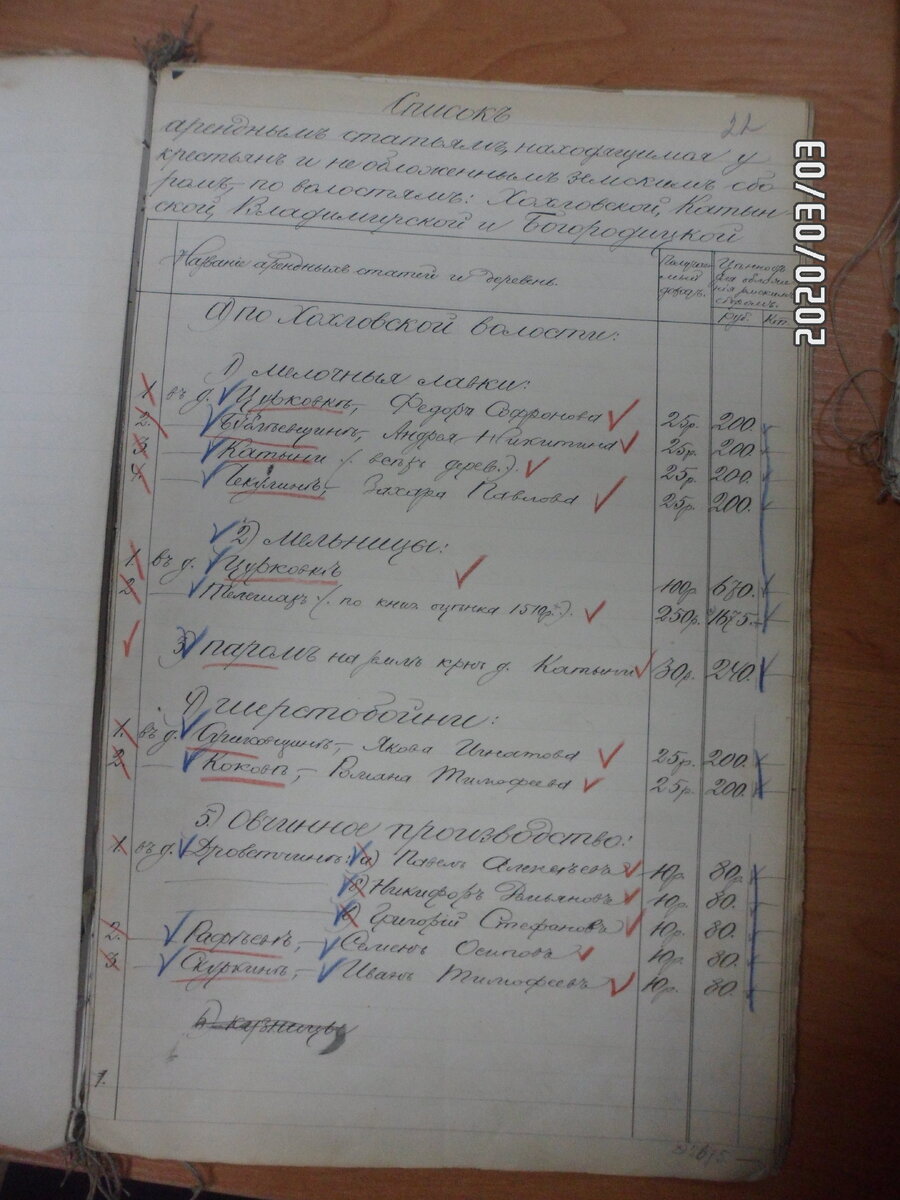 Списокъ
22
аренднымъ статьямъ, находящимся у
крестьянъ и не обложеннымъ земскимъ сбо
ромъ, по волостямъ: Хохловской, Катын-
ской, Владимирской и Богородицкой
Названіе арендныхъ статей и деревень.
Получае
мый
доходъ.
Цѣнность
для обложе
нія земским
сборомъ.
руб. Коп.
а) по Хохловской волости:
1) мелочныя лавки:
1. въ д. Цурковкѣ, Федора Софронова 25р. 200.
2. — Андрея Никитина 25р. 200.
3. — Катыни 25р. 200.
4. — Чекулинѣ, Захара Павлова 25р. 200.
2) мельницы:
1. въ д. Цурковкѣ 100р. 670.
2. — 250р. 1675.
3) паромъ на д. Катыни 30р. 240.
4) шерстобойни:
1. въ д. Якова Игнатова 25р. 200.
2. — Коковѣ, Романа Тимофеева 25р. 200.
5) Овчинное производство:
1. въ д. а) Павелъ Алексѣевъ 10р. 80р.
б) Никифоръ 10р. 80.
в) Григорій Стефановъ 10р. 80.
2. Семенъ Осиповъ 10р. 80.
3. Скуркинѣ, Иванъ Тимофеевъ 10р. 80.
6) кузницы
1.
0202/03/03